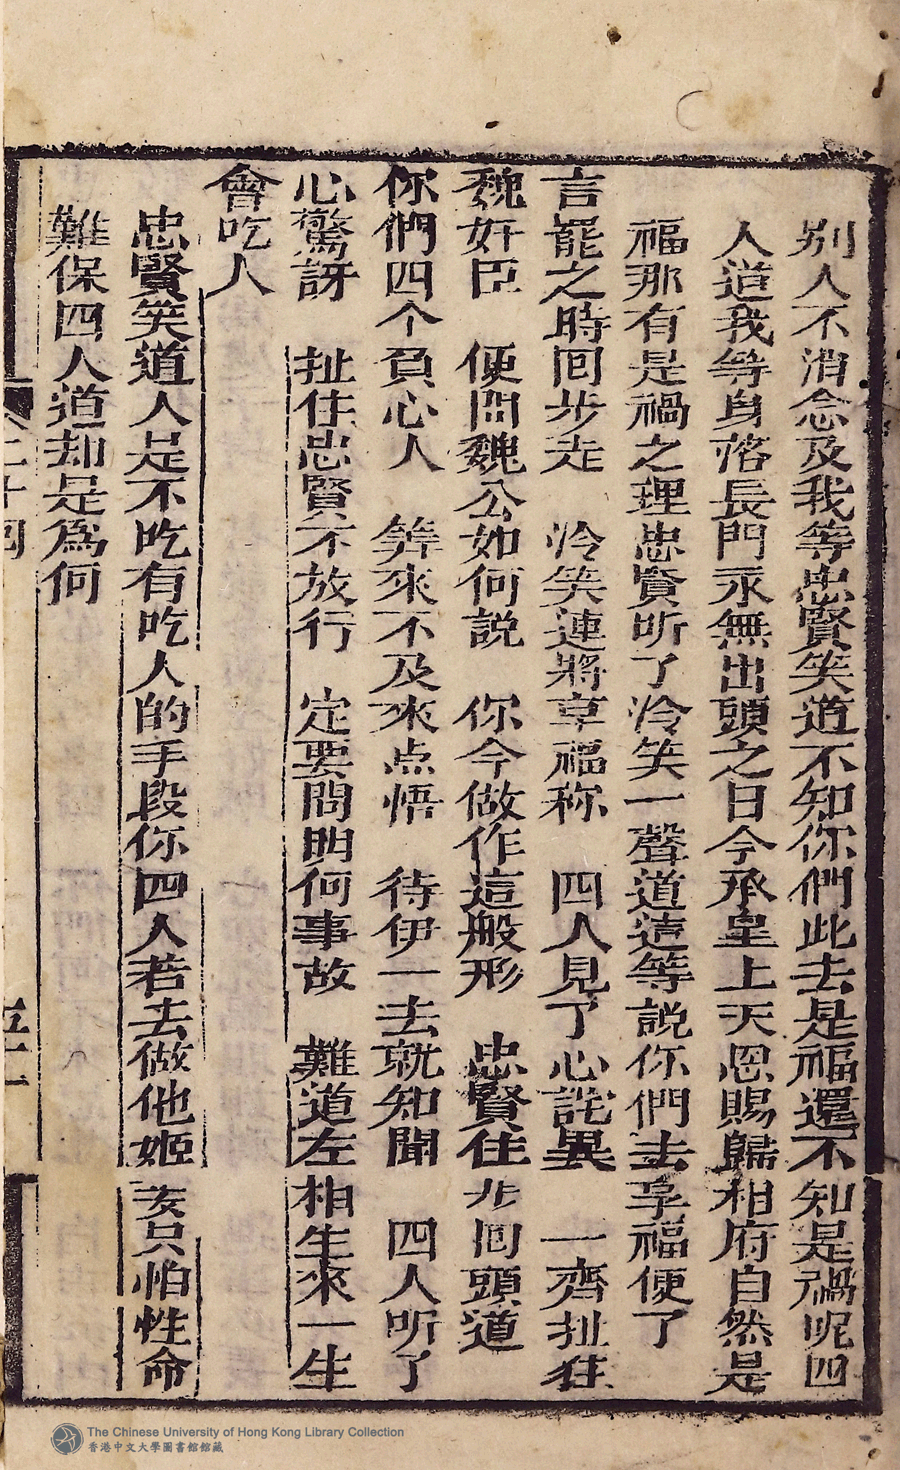 别人不消念及我等忠賢笑道不知你們此去是福還不知是禍呢四
人道我等身落長門永無出頭之日今承皇上天恩賜歸相府自然是
福那有是禍之理忠賢听了冷笑一聲道這等說你們去享福便了
言罷之時囘步走　冷笑連將享福称　四人見了心詫異　一齊扯住
魏奸臣　便問魏公如何説　你今做作這般形　忠賢住步囘頭道
你們四个負心人　筭來不及來点悟　待伊一去就知聞　四人听了
心驚訝　扯住忠賢不放行　定要問明何事故　難道左相生來一生
會吃人
忠賢笑道人是不吃有吃人的手段你四人若去做他姬妾只怕性命
難保四人道却是爲何
二十四
五十一
The Chinese University of Hong Kong Library Collection
香港中文大學圖書館館藏